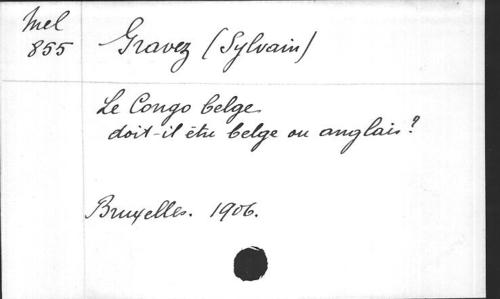 Mel
855
Gravez (Sylvain)
Le Congo belge
doit-il être belge ou anglais?
Bruxelles. 1906.